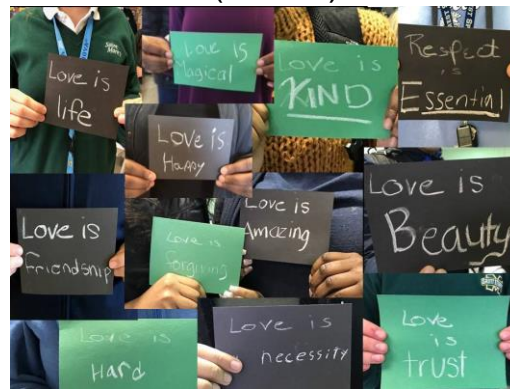 Love is
life
Love is
Magical
Love is
KIND
Respect
is
Essential
Love is
Happy
Love is
Beauty
Love is
Friendship
Love is
Forgiving
Love is
Amazing
Love is
Hard
Love is
necessity
Love
is
trust